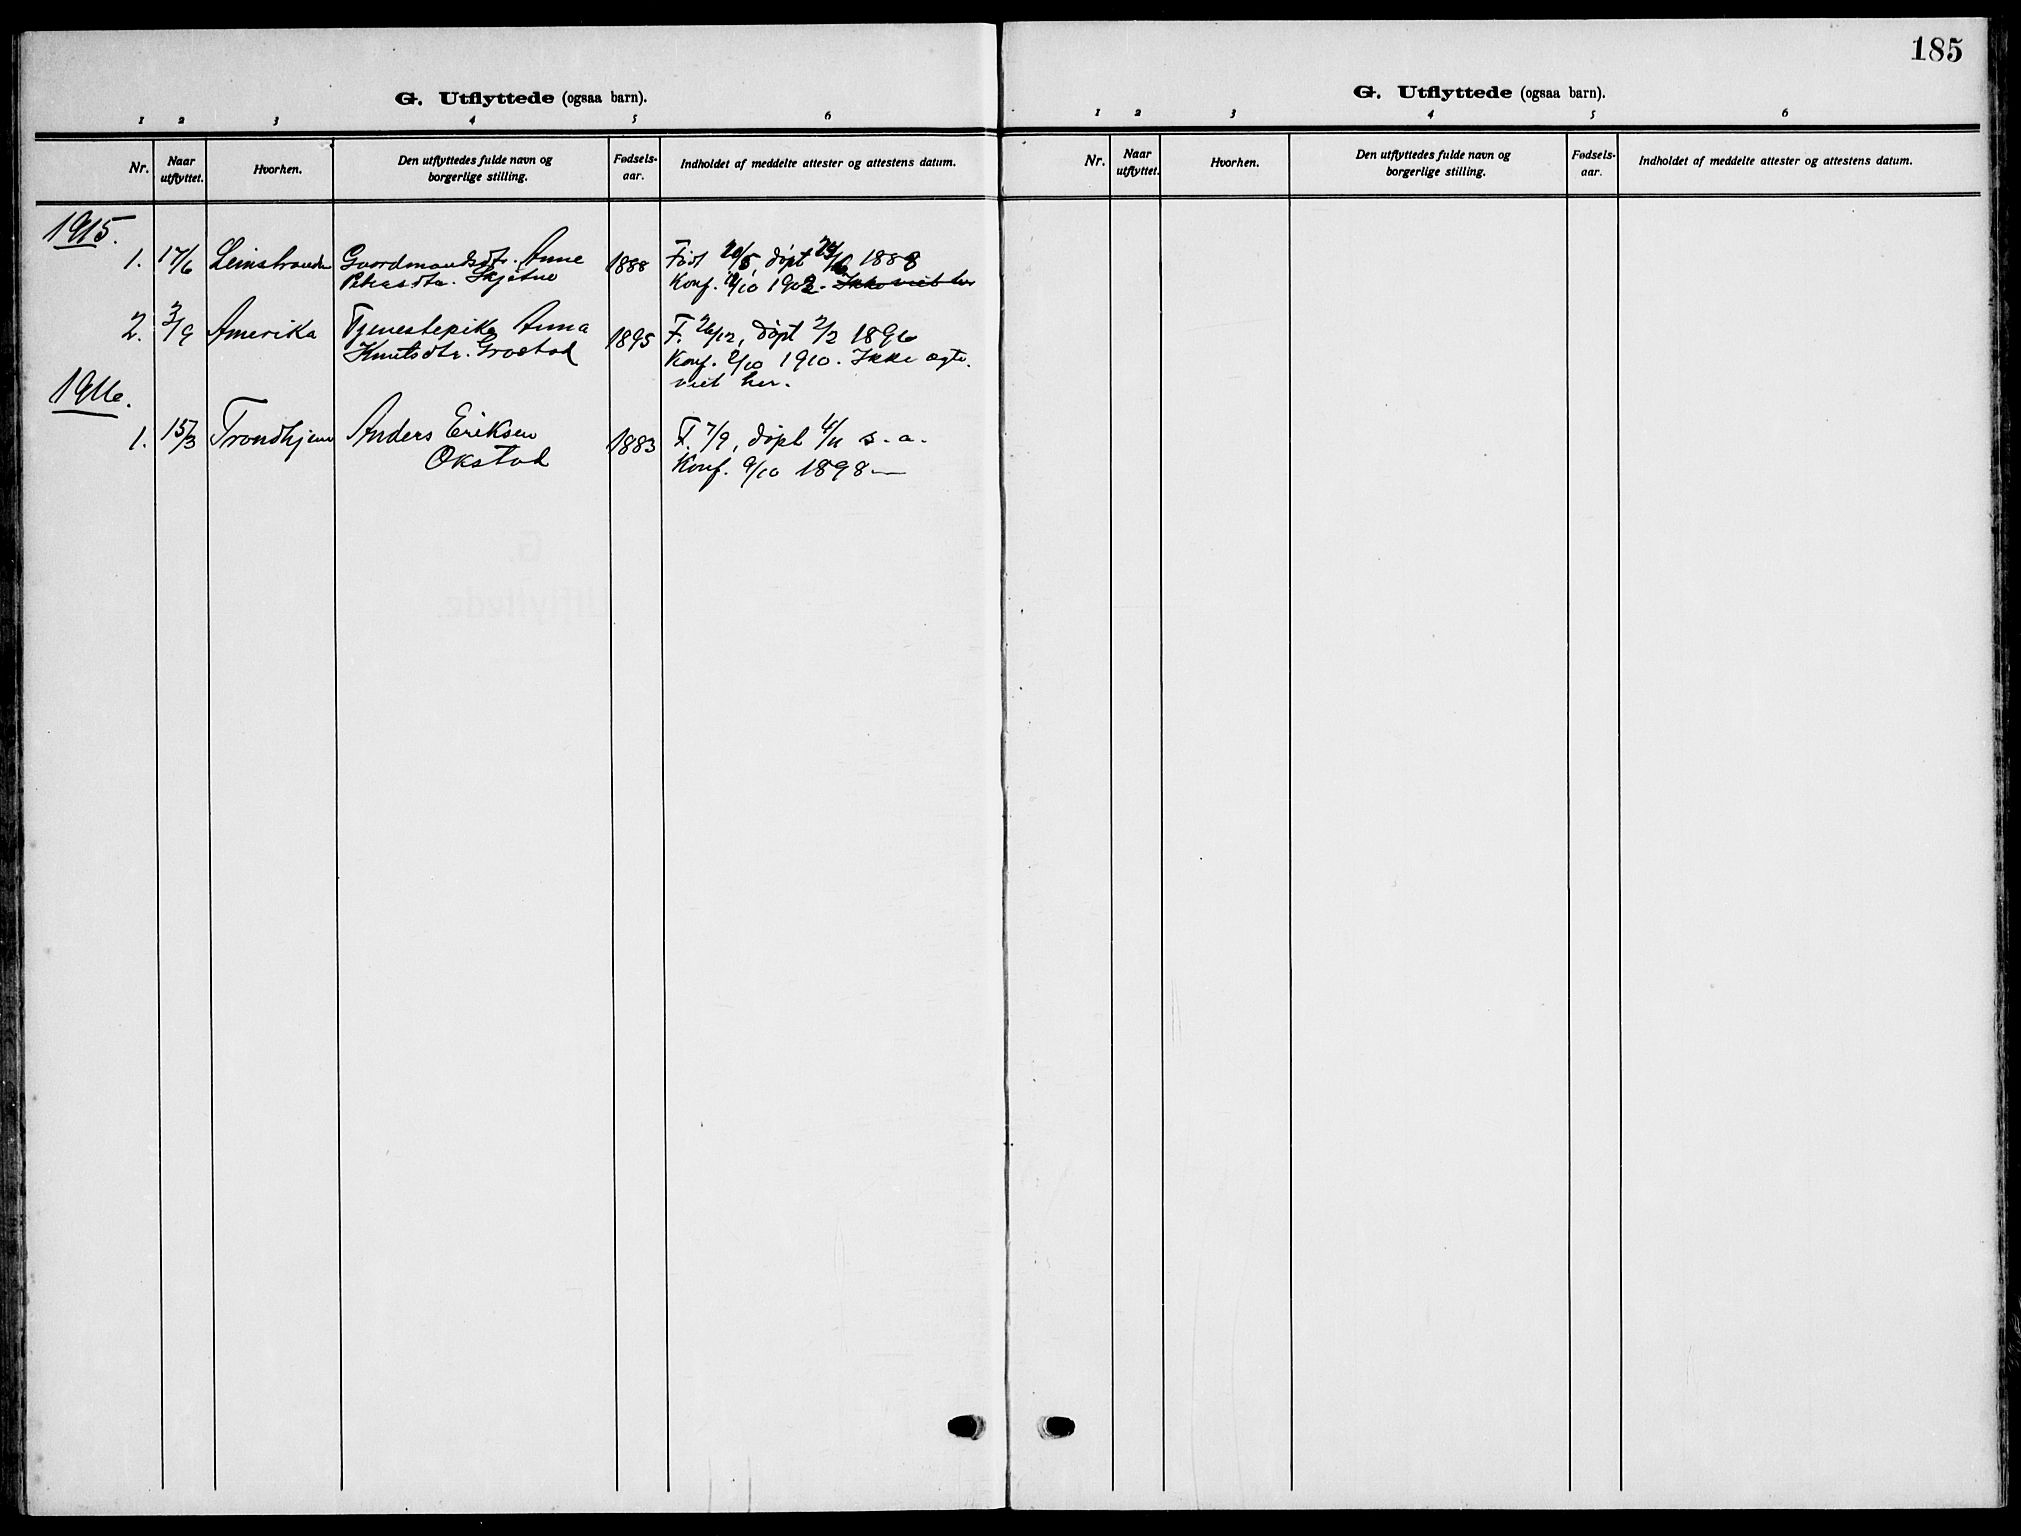 185
G. Utflyttede (ogsaa barn).
1 2 3 4 5 6
Nr. Naar utflyttet. Hvorhen. Den utflyttedes fulde navn og borgerlige stilling. Fødsels-aar. Indholdet af meddelte attester og attestens datum.
1915.
1. 17/6 Leinstranden Gaardmandsdtr. Anne 1888 Født 20/5, døpt 24/6 1888
Petersdtr. Skjetne Konf. /10 1902. Ikke viet her
2. 3/9 Amerika Tjenestepike Anna 1895 F. 26/12, døpt 2/2 1896
Knutsdtr. Grostad Konf. 2/10 1910. Ikke ægte-
viet her.
1916.
1. 15/3 Trondhjem Anders Eriksen 1883 F. 7/9, døpt 4/11 s. a.
Okstad Konf. 9/10 1898 —
G. Utflyttede (ogsaa barn).
1 2 3 4 5 6
Nr. Naar utflyttet. Hvorhen. Den utflyttedes fulde navn og borgerlige stilling. Fødsels-aar. Indholdet af meddelte attester og attestens datum.